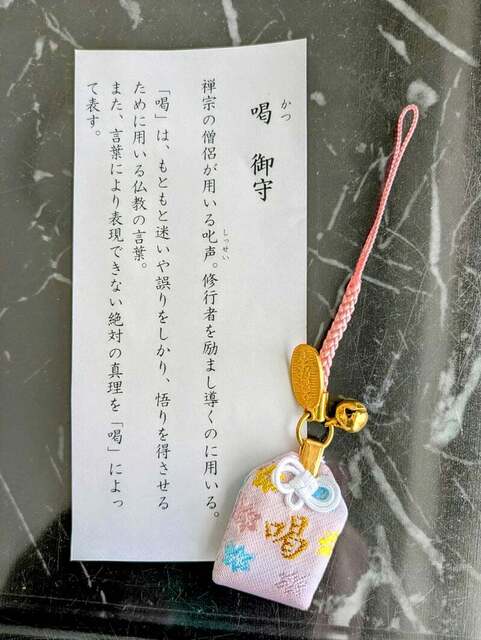 かつ
喝　御守
しっせい
禅宗の僧侶が用いる叱声。修行者を励まし導くのに用いる。
「喝」は、もともと迷いや誤りをしかり、悟りを得させる
ために用いる仏教の言葉。
また、言葉により表現できない絶対の真理を「喝」によっ
て表す。
喝